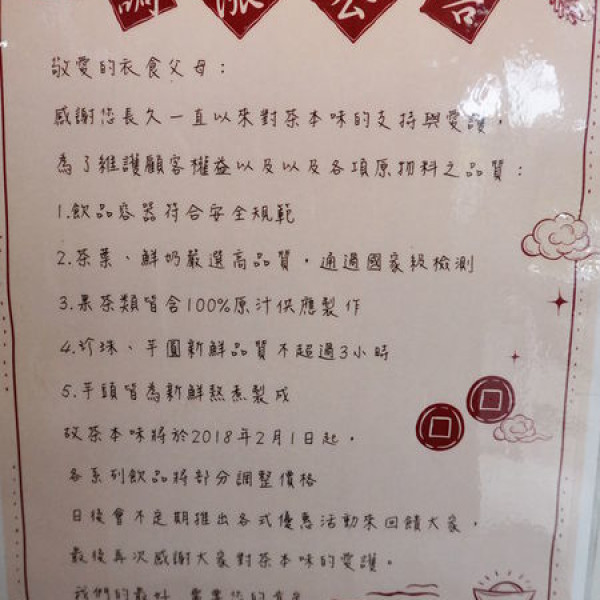 調漲公告
敬愛的衣食父母：
感謝您長久一直以來對茶本味的支持與愛護，
為了維護顧客權益以及以及各項原物料之品質：
1.飲品容器符合安全規範
2.茶葉、鮮奶嚴選高品質，通過國家級檢測
3.果茶類皆含100%原汁供應製作
4.珍珠、芋圓新鮮品質不超過3小時
5.芋頭皆為新鮮熬煮製成
故茶本味將於2018年2月1日起，
各系列飲品將部分調整價格
日後會不定期推出各式優惠活動來回饋大家，
最後再次感謝大家對茶本味的愛護。
我們的最好